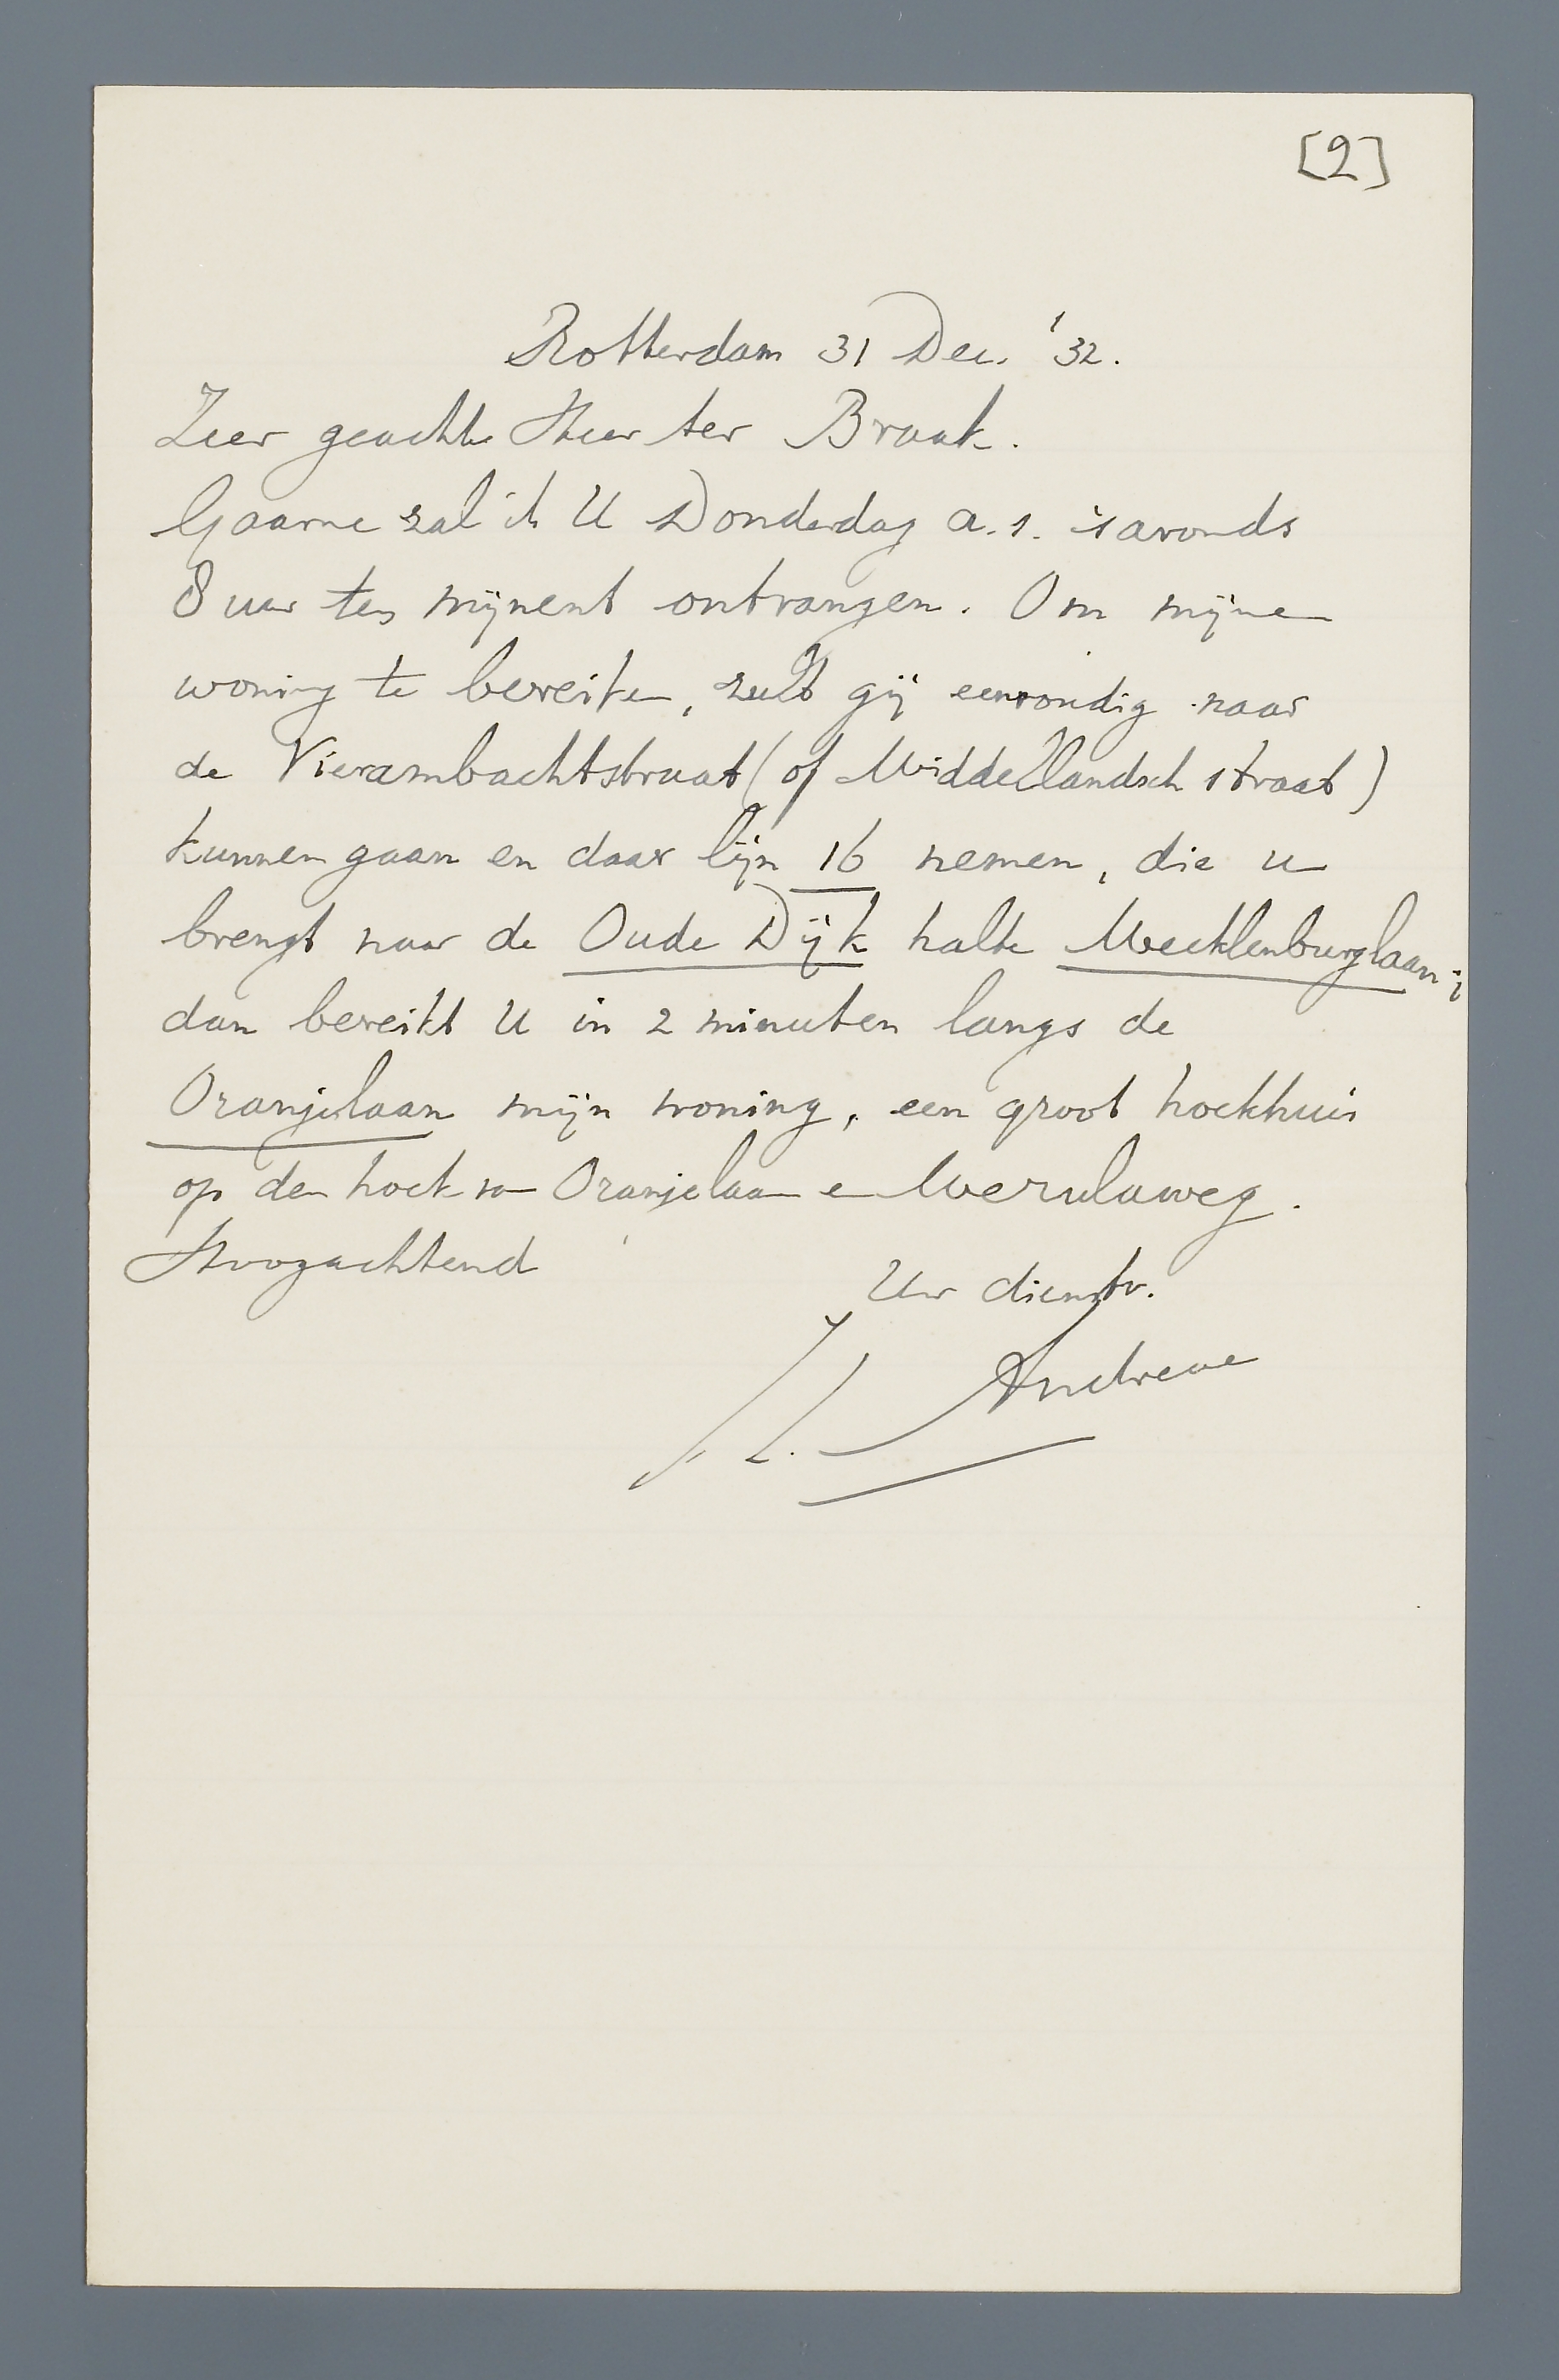 [2]
Rotterdam 31 Dec. '32.
Zeer geachte Heer ter Braak.
Gaarne zal ik U Donderdag a.s. 's avonds
8 uur ten mijnent ontvangen. Om mijne
woning te bereiken, zult gij eenvoudig naar
de Vierambachtstraat (of Middellandsch straat)
kunnen gaan en daar lijn 16 nemen, die u
brengt naar de Oude Dijk halte Mecklenburglaan;
dan bereikt U in 2 minuten langs de
Oranjelaan mijn woning, een groot hoekhuis
op den hoek van Oranjelaan en Merulaweg.
Hoogachtend
Uw dienstv.
J. L. Andreae